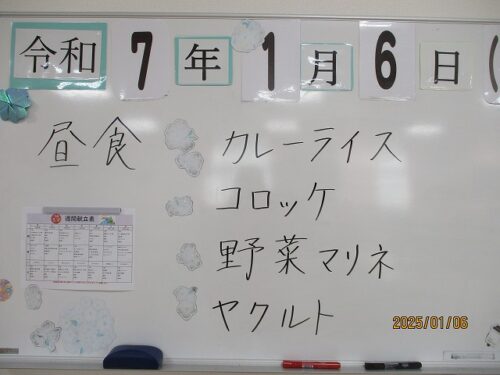 令和 7 年 1 月 6 日 (
昼食
カレーライス
コロッケ
野菜マリネ
ヤクルト
週間献立表
2025/01/06